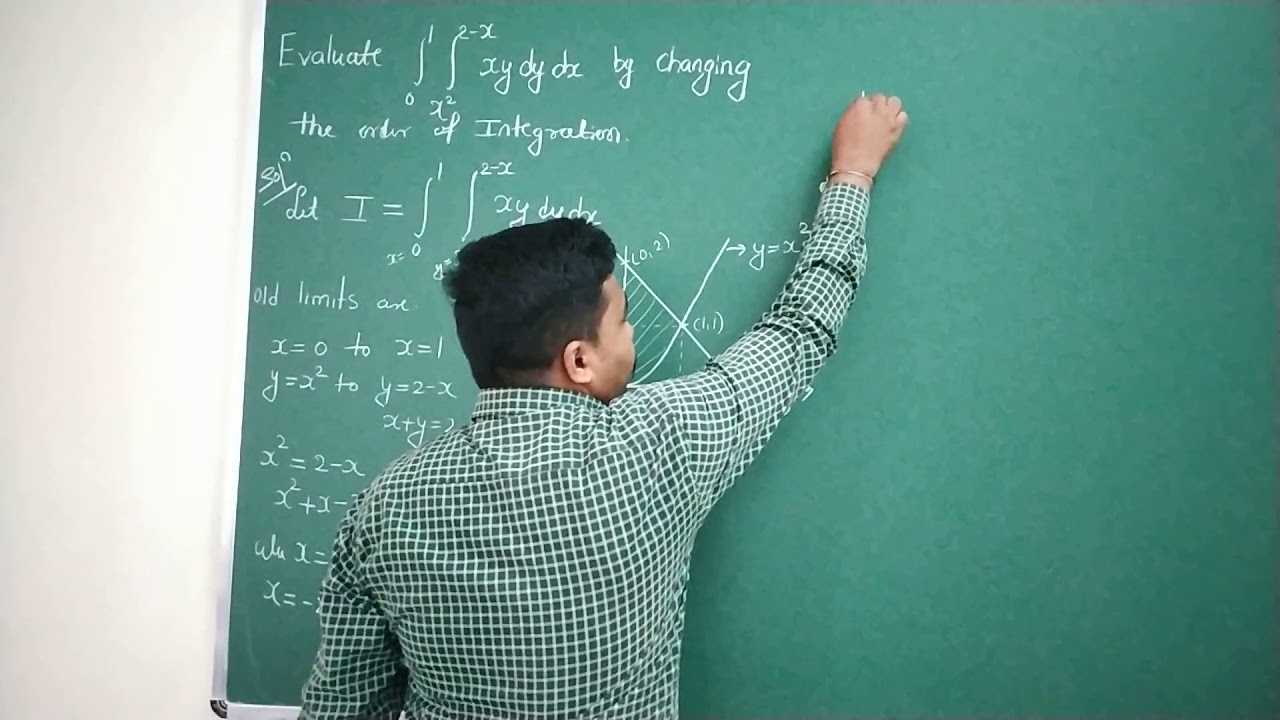 Evaluate ∫₀¹ ∫ₓ²^(2-x) xy dy dx by changing
the order of Integration.
Solⁿ
Let I = ∫ₓ₌₀¹ ∫^(2-x) xy dy dx
old limits are
x=0 to x=1
y=x² to y=2-x
x+y=2
x²=2-x
x²+x-
x=
x=-2
(0,2)
→ y=x²
(1,1)